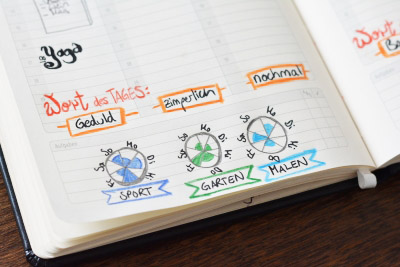 Yoga
Wort des TAGES:
Geduld
zimperlich
nochmal
Mo Di Mi Do Fr Sa So
Mo Di Mi Do Fr Sa So
Mo Di Mi Do Fr Sa So
SPORT
GARTEN
MALEN
Wort